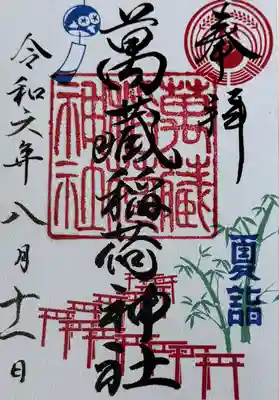 奉拝
萬蔵稲荷神社
萬蔵
神社
夏詣
令和六年八月十一日